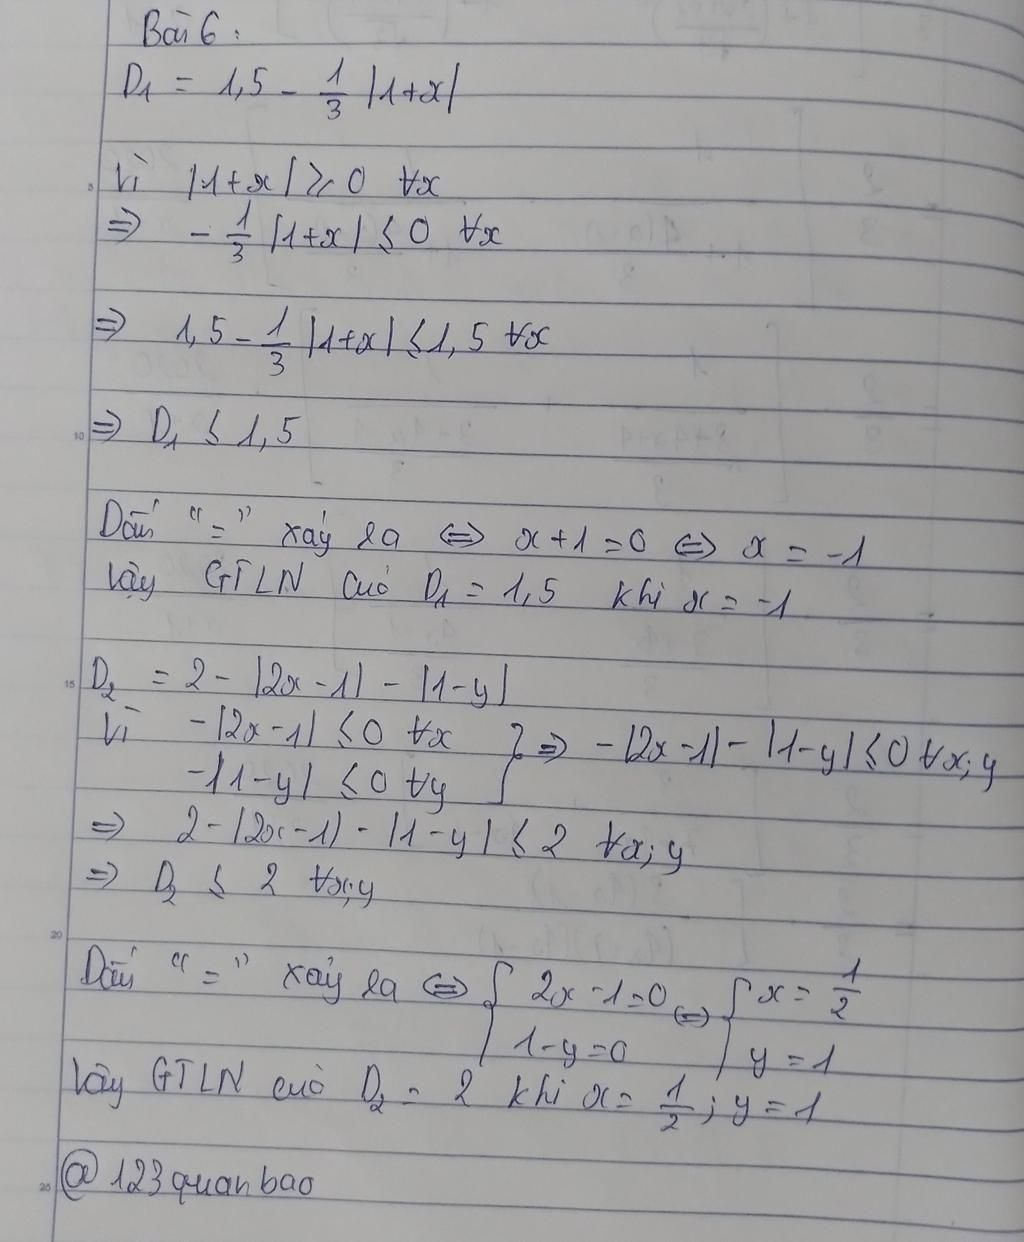 Bài 6:
D₁ = 1,5 - 1/3 |1+x|
Vì |1+x| ⩾ 0 ∀x
⇒ - 1/3 |1+x| ≤ 0 ∀x
⇒ 1,5 - 1/3 |1+x| ≤ 1,5 ∀x
⇒ D₁ ≤ 1,5
Dấu "=" xảy ra ⇔ x+1=0 ⇔ x = -1
Vậy GTLN của D₁ = 1,5 khi x = -1
D₂ = 2 - |2x-1| - |1-y|
Vì -|2x-1| ≤ 0 ∀x
-|1-y| ≤ 0 ∀y } ⇒ -|2x-1| - |1-y| ≤ 0 ∀x;y
⇒ 2-|2x-1| - |1-y| ≤ 2 ∀x;y
⇒ D₂ ≤ 2 ∀x;y
Dấu "=" xảy ra ⇔ { 2x-1=0 ⇔ { x = 1/2
1-y=0 y=1
Vậy GTLN của D₂ = 2 khi x = 1/2; y=1
@123quanbao
5
10
15
20
25